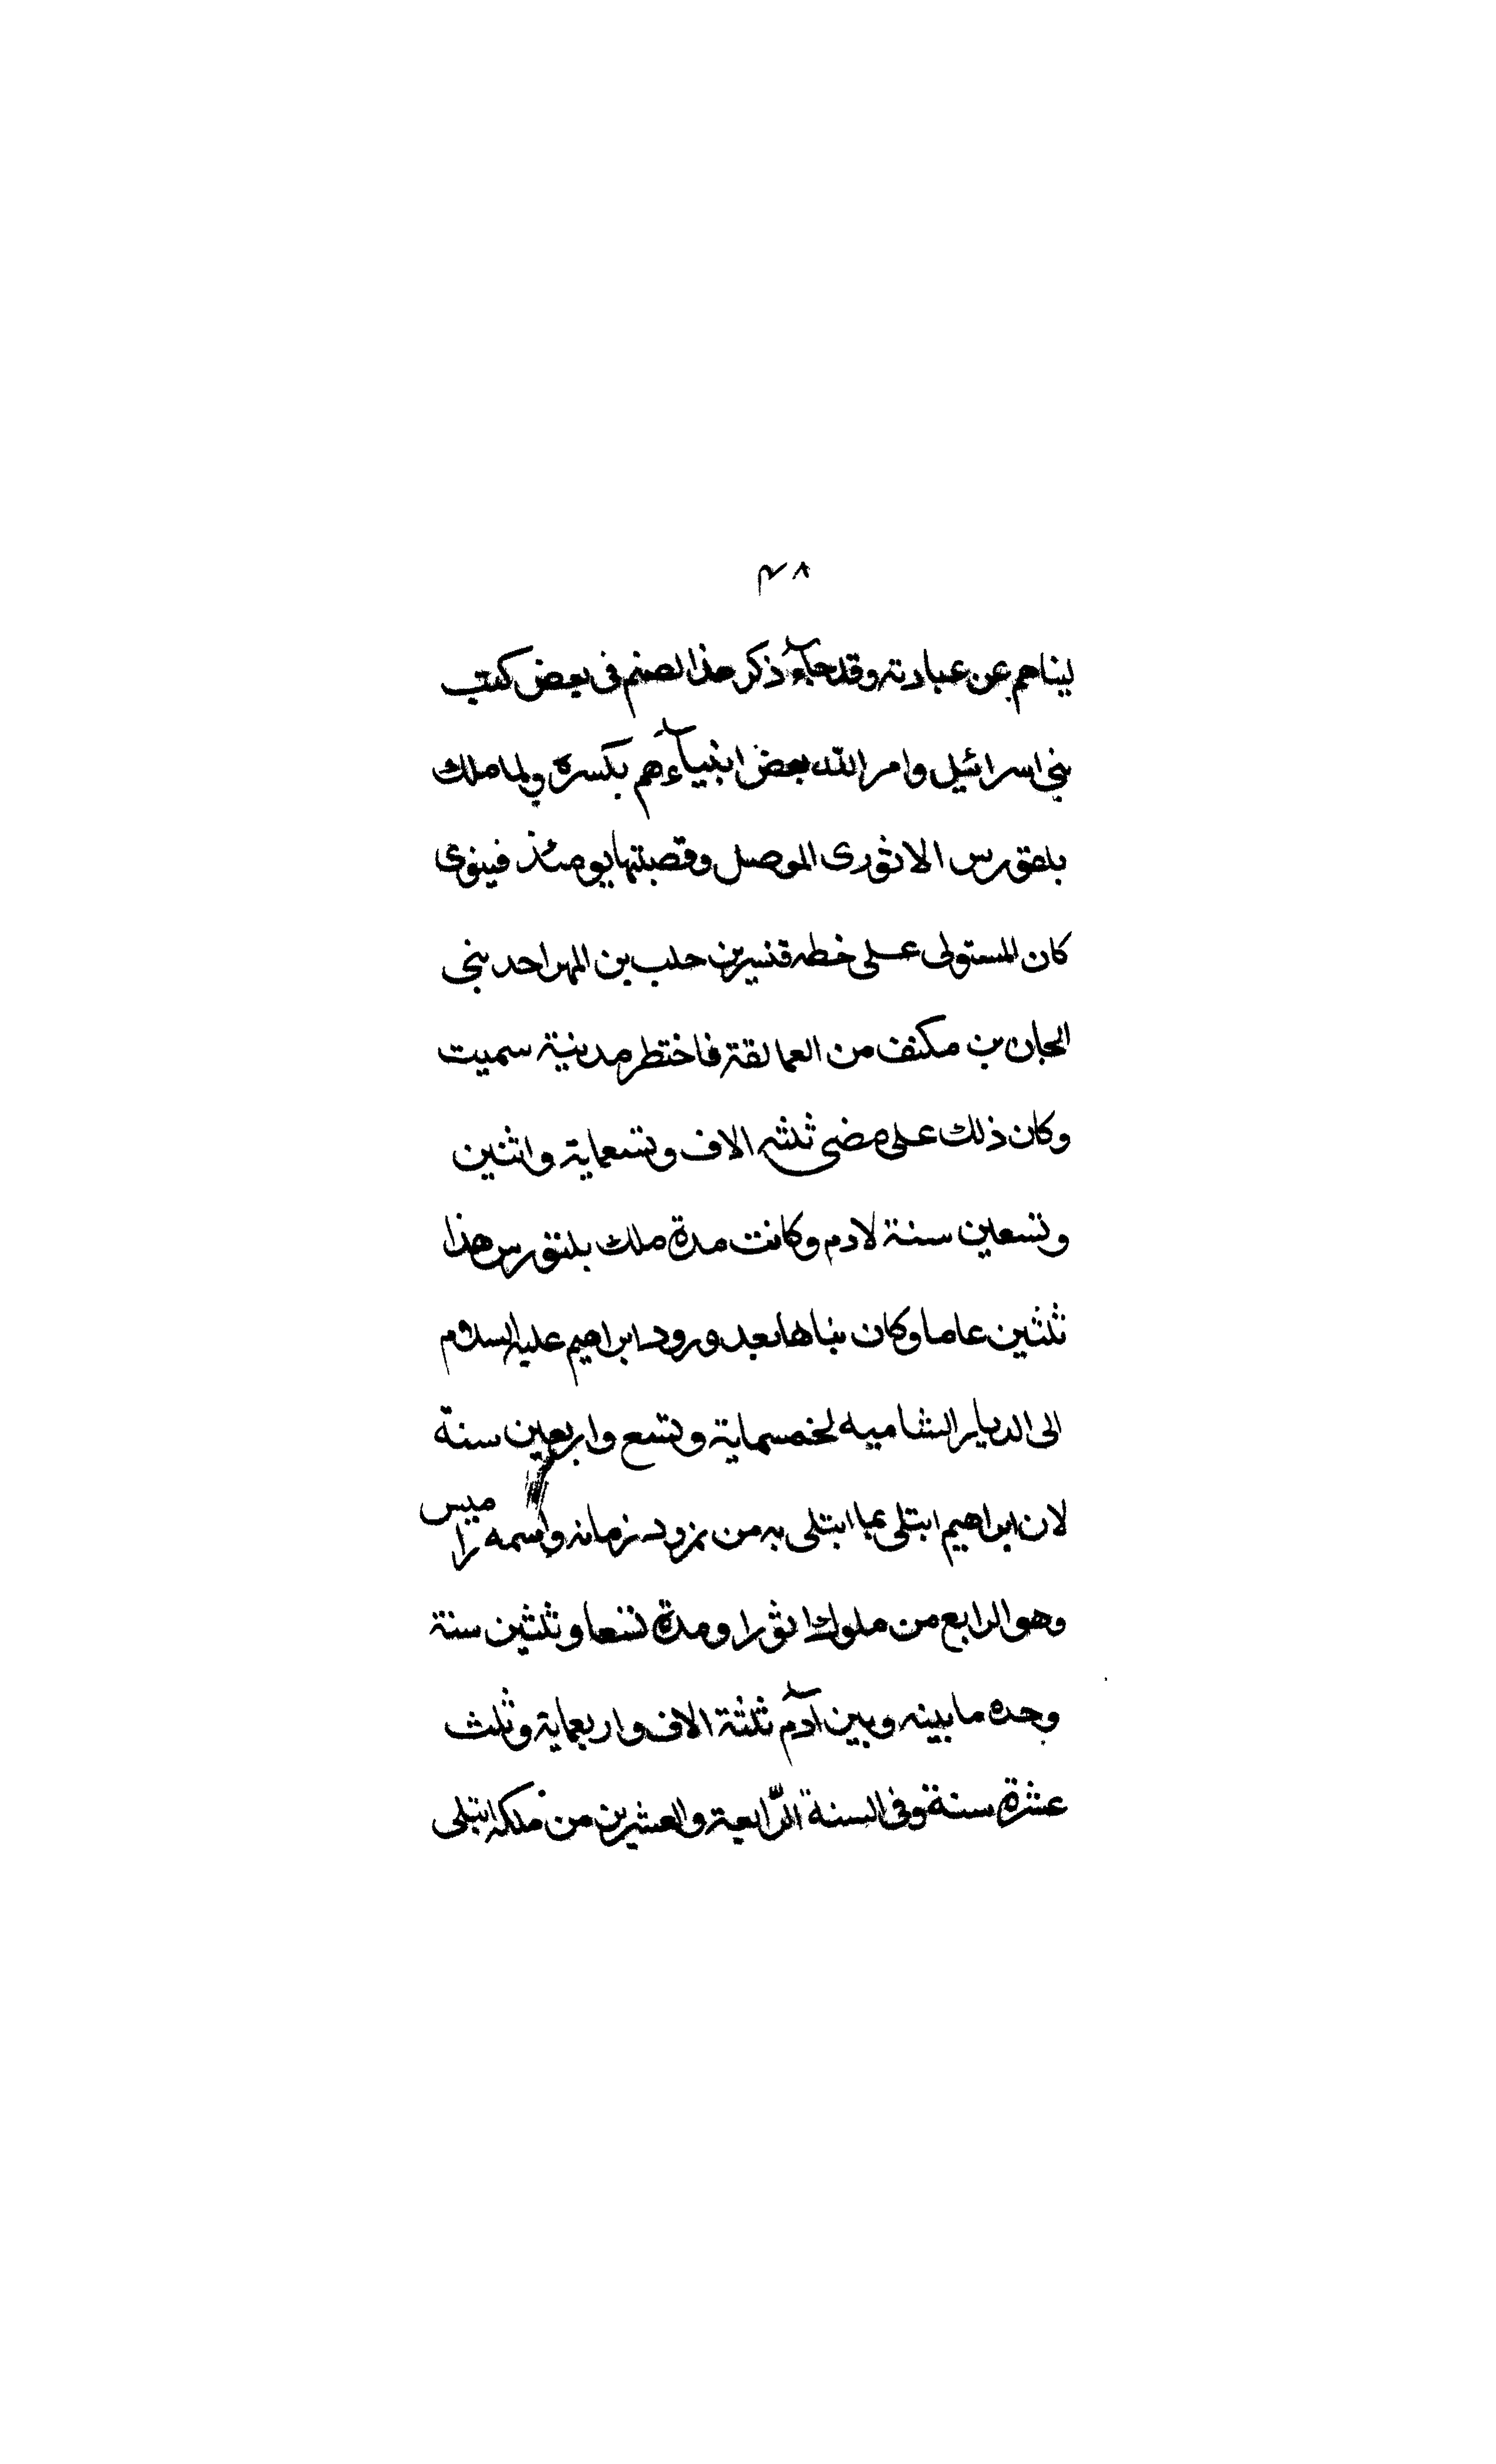 ٤٨
ليناهم عن عبادته وقد جآء ذكر هذا الصنم فى بعض كتب
بنى اسرائيل وامر الله بعض انبيآءهم بكسره ولما ملك
بلقورس الاثورى الموصل وقصبتها يومئذ نينوى
كان المستولى على خطه قنسرين حلب بن المهر احد بنى
الجان بن مكنف من العمالقة فاختطر مدينة سميت
وكان ذلك على مضى ثلثه الاف وتسعماية واثنين
وتسعين سنة لادم وكانت مدة ملك بلنقورس هذا
ثلثين عاما وكان بناها بعد ورود ابراهيم عليه السلام
الى الديار الشاميه لخمسماية وتسع واربعين سنة
لان ابراهيم ابتلى بما ابتلى به من نمرود زمانه واسمه راميس
وهو الرابع من ملوك اثورا ومدة تسعا وثلثين سنة
وجده ما بينه وبين آدم ثلثة الاف واربعماية وثلث
عشرة سنة وفى السنة الرّابعة والعشرين من ملكه ابتلى